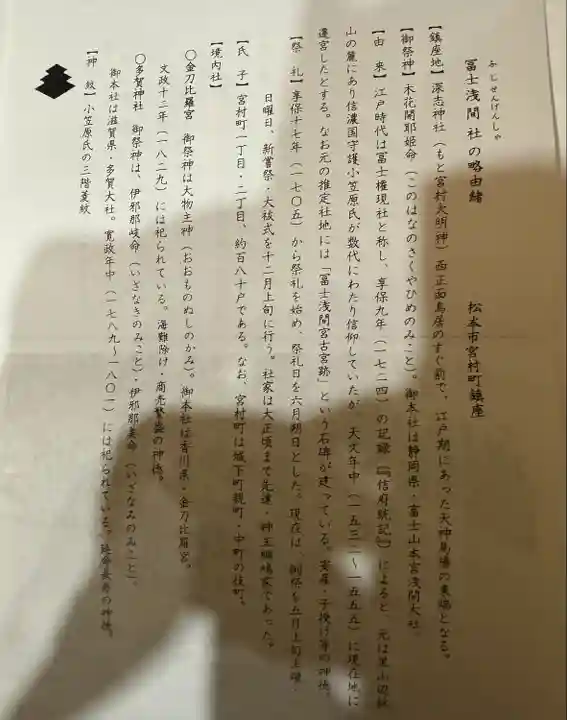 ふじせんげんしゃ
冨士浅間社の略由緒　松本市宮村町鎮座
【鎮座地】深志神社（もと宮村大明神）西正面鳥居のすぐ前で、江戸期にあった天神馬場の東端となる。
【御祭神】木花開耶姫命（このはなのさくやひめのみこと）。御本社は静岡県・富士山本宮浅間大社。
【由　来】江戸時代は冨士権現社と称し、享保九年（一七二四）の記録『信府統記』によると、元は里山辺林
山の麓にあり信濃国守護小笠原氏が数代にわたり信仰していたが、天文年中（一五三二～一五五五）に現在地に
遷宮したとする。なお元の推定社地には「冨士浅間宮古宮跡」という石碑が建っている。安産・子授け等の神徳。
【祭　礼】享保十七年（一七〇五）から祭礼を始め、祭礼日を六月朔日とした。現在は、例祭を五月上旬土曜・
日曜日、新嘗祭・大祓式を十二月上旬に行う。社家は大正頃まで先達・神主 家であった。
【氏　子】宮村町一丁目・二丁目、約百八十戸である。なお、宮村町は城下町親町・中町の枝町。
【境内社】
〇金刀比羅宮　御祭神は大物主神（おおものぬしのかみ）。御本社は香川県・金刀比羅宮。
文政十二年（一八二九）には祀られている。海難除け・商売繁盛の神徳。
〇多賀神社　御祭神は、伊邪那岐命（いざなきのみこと）・伊邪那美命（いざなみのみこと）。
御本社は滋賀県・多賀大社。寛政年中（一七八九～一八〇一）には祀られている。延命長寿の神徳。
【神　紋】小笠原氏の三階菱紋